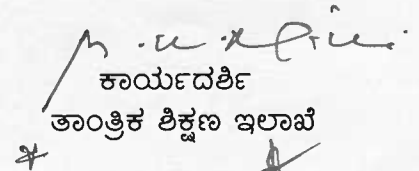 ಕಾರ್ಯದರ್ಶಿ
ತಾಂತ್ರಿಕ ಶಿಕ್ಷಣ ಇಲಾಖೆ